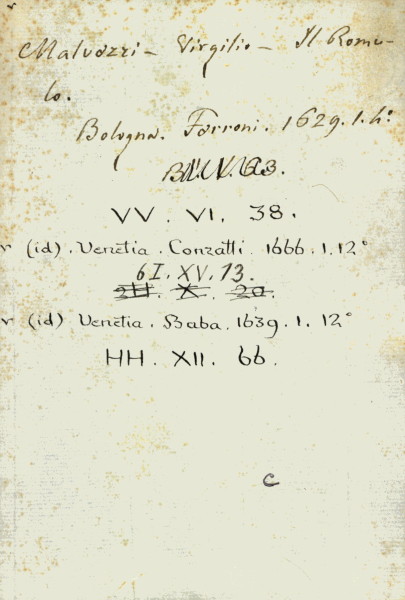 Malvezzi - Virgilio - Il Romu-
lo.
Bologna. Ferroni. 1629. 1. 4°
VV. VI. 38.
v (id). Venetia. Conzatti. 1666. 1. 12°
6 I. XV. 13.
HH. X. 20.
v (id) Venetia. Baba. 1639. 1. 12°
HH. XII. 66.
C